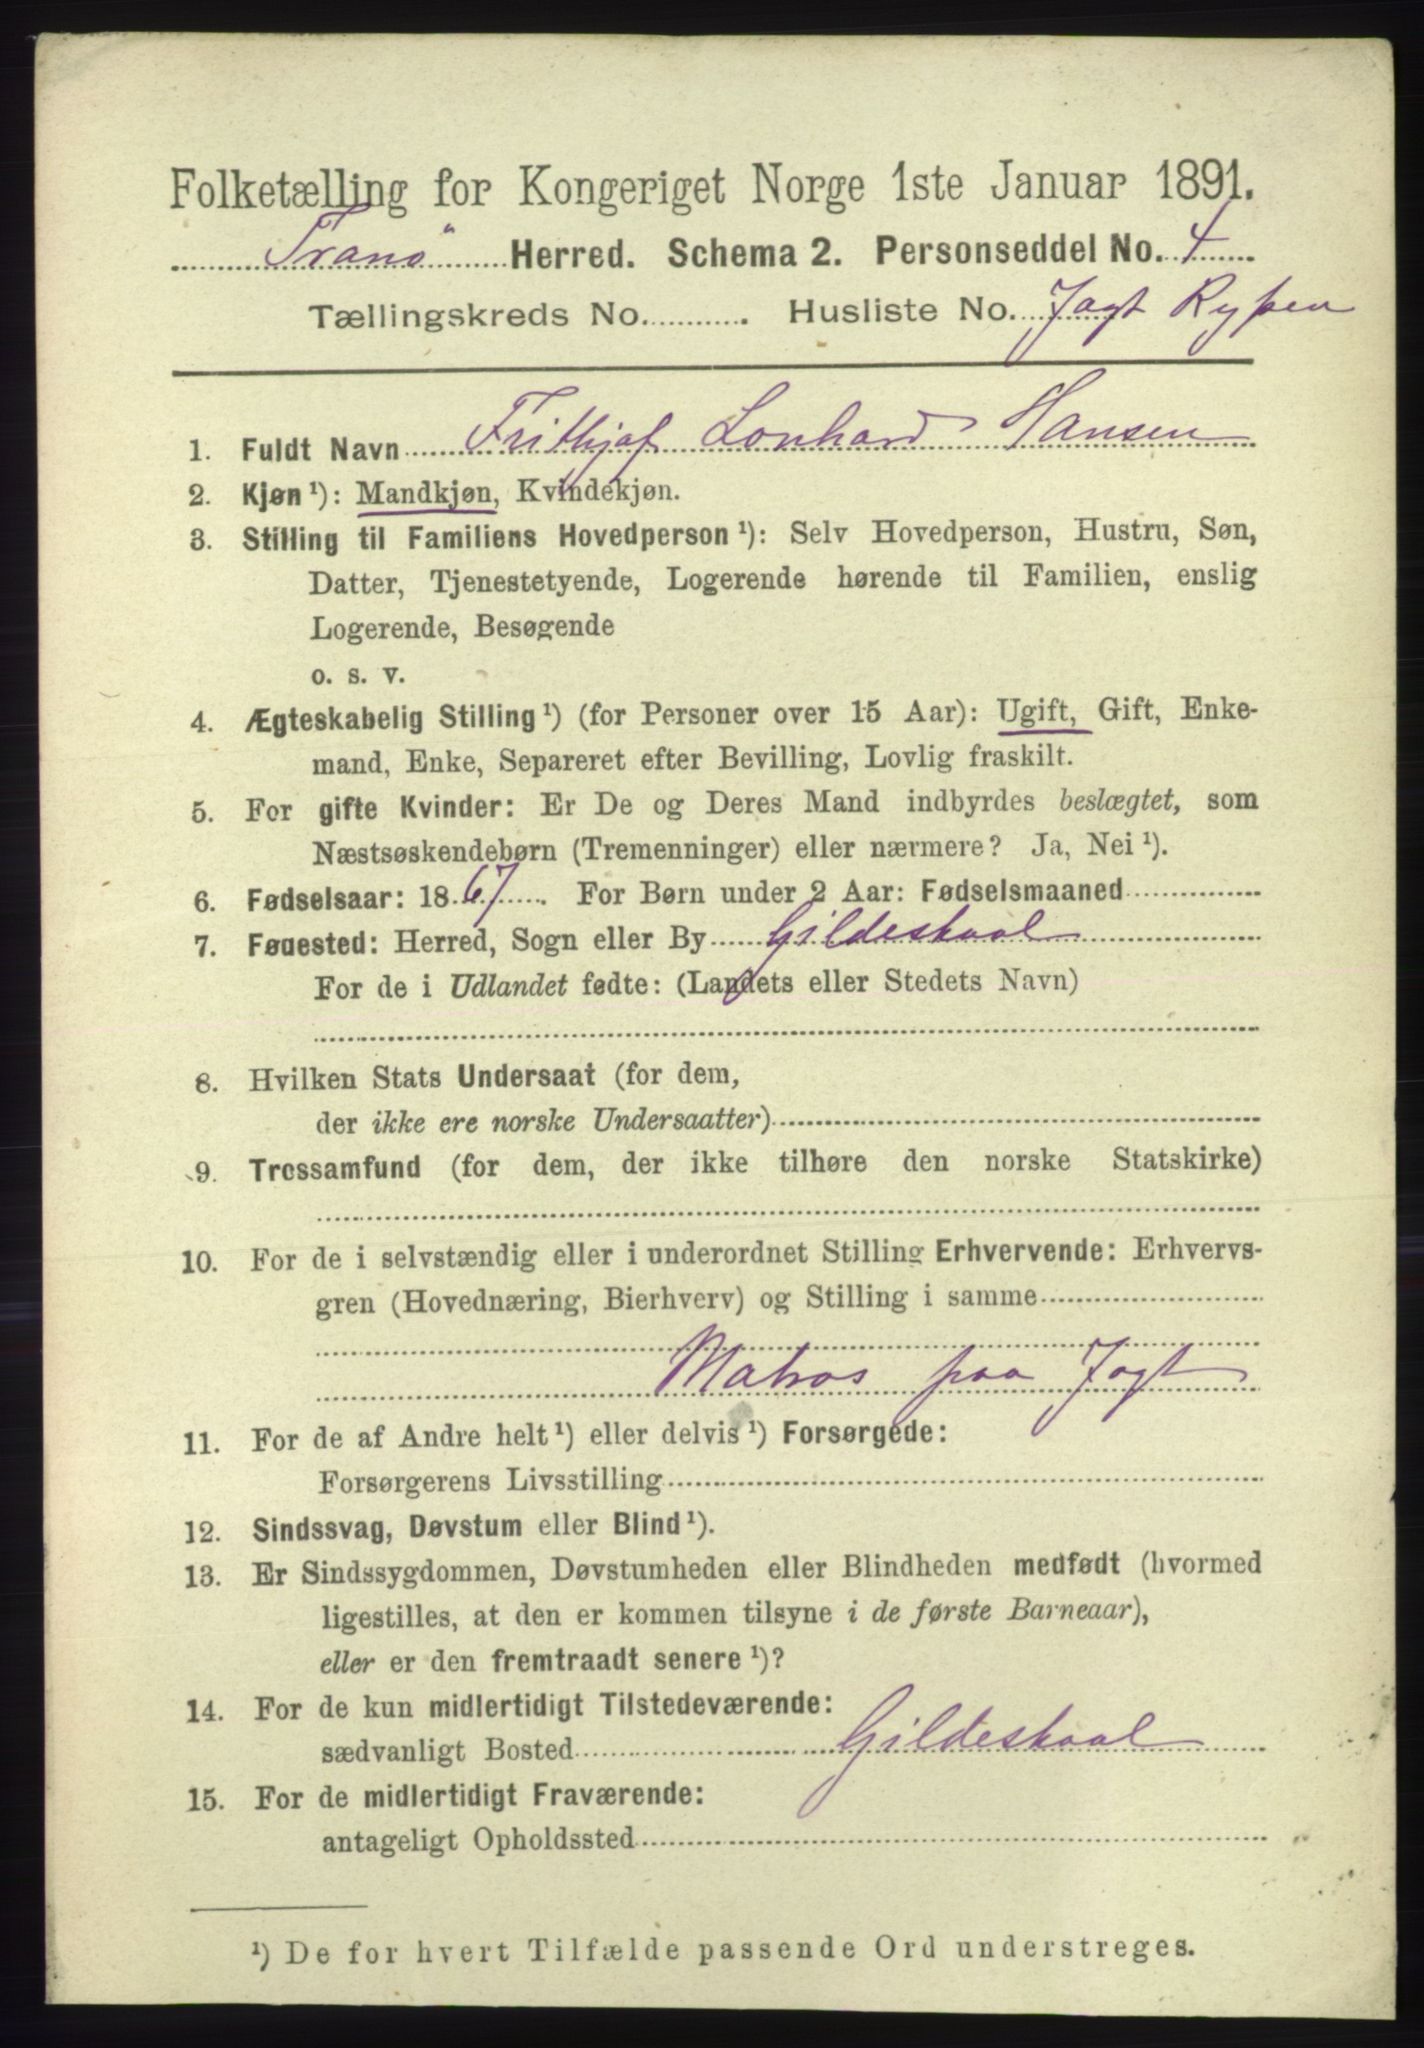 Folketælling for Kongeriget Norge 1ste Januar 1891.
Tranö Herred. Schema 2. Personseddel No. 4
Tællingskreds No. Husliste No. Jagt Rypen
1. Fuldt Navn Frithjof Lonhard Hansen
2. Kjøn ¹): Mandkjøn, Kvindekjøn.
3. Stilling til Familiens Hovedperson ¹): Selv Hovedperson, Hustru, Søn,
Datter, Tjenestetyende, Logerende hørende til Familien, enslig
Logerende, Besøgende
o. s. v.
4. Ægteskabelig Stilling ¹) (for Personer over 15 Aar): Ugift, Gift, Enke-
mand, Enke, Separeret efter Bevilling, Lovlig fraskilt.
5. For gifte Kvinder: Er De og Deres Mand indbyrdes beslægtet, som
Næstsøskendebørn (Tremenninger) eller nærmere? Ja, Nei ¹).
6. Fødselsaar: 1867. For Børn under 2 Aar: Fødselsmaaned
7. Fødested: Herred, Sogn eller By Gildeskaal
For de i Udlandet fødte: (Landets eller Stedets Navn)
8. Hvilken Stats Undersaat (for dem,
der ikke ere norske Undersaatter)
9. Trossamfund (for dem, der ikke tilhøre den norske Statskirke)
10. For de i selvstændig eller i underordnet Stilling Erhvervende: Erhvervs-
gren (Hovednæring, Bierhverv) og Stilling i samme
Matros paa Jagt
11. For de af Andre helt ¹) eller delvis ¹) Forsørgede:
Forsørgerens Livsstilling
12. Sindssvag, Døvstum eller Blind ¹).
13. Er Sindssygdommen, Døvstumheden eller Blindheden medfødt (hvormed
ligestilles, at den er kommen tilsyne i de første Barneaar),
eller er den fremtraadt senere ¹)?
14. For de kun midlertidigt Tilstedeværende:
sædvanligt Bosted Gildeskaal
15. For de midlertidigt Fraværende:
antageligt Opholdssted
¹) De for hvert Tilfælde passende Ord understreges.